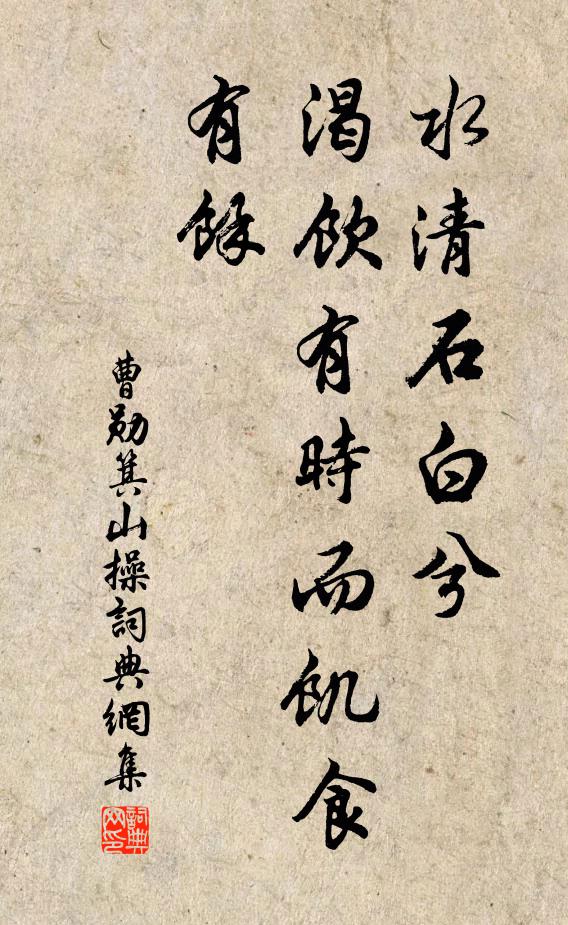 水清石白兮
渴飲有時而飢食
有餘
曹勛箕山操詞典網集
詞典
网印